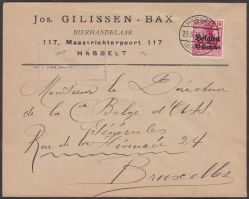 Jos. GILISSEN - BAX
BIERHANDELAAR
117, Maastrichterpoort 117
HASSELT
Belgien
Monsieur le Directeur
de la Cie Belge d'Ass.
Générales
Rue de la
24
Bruxelles